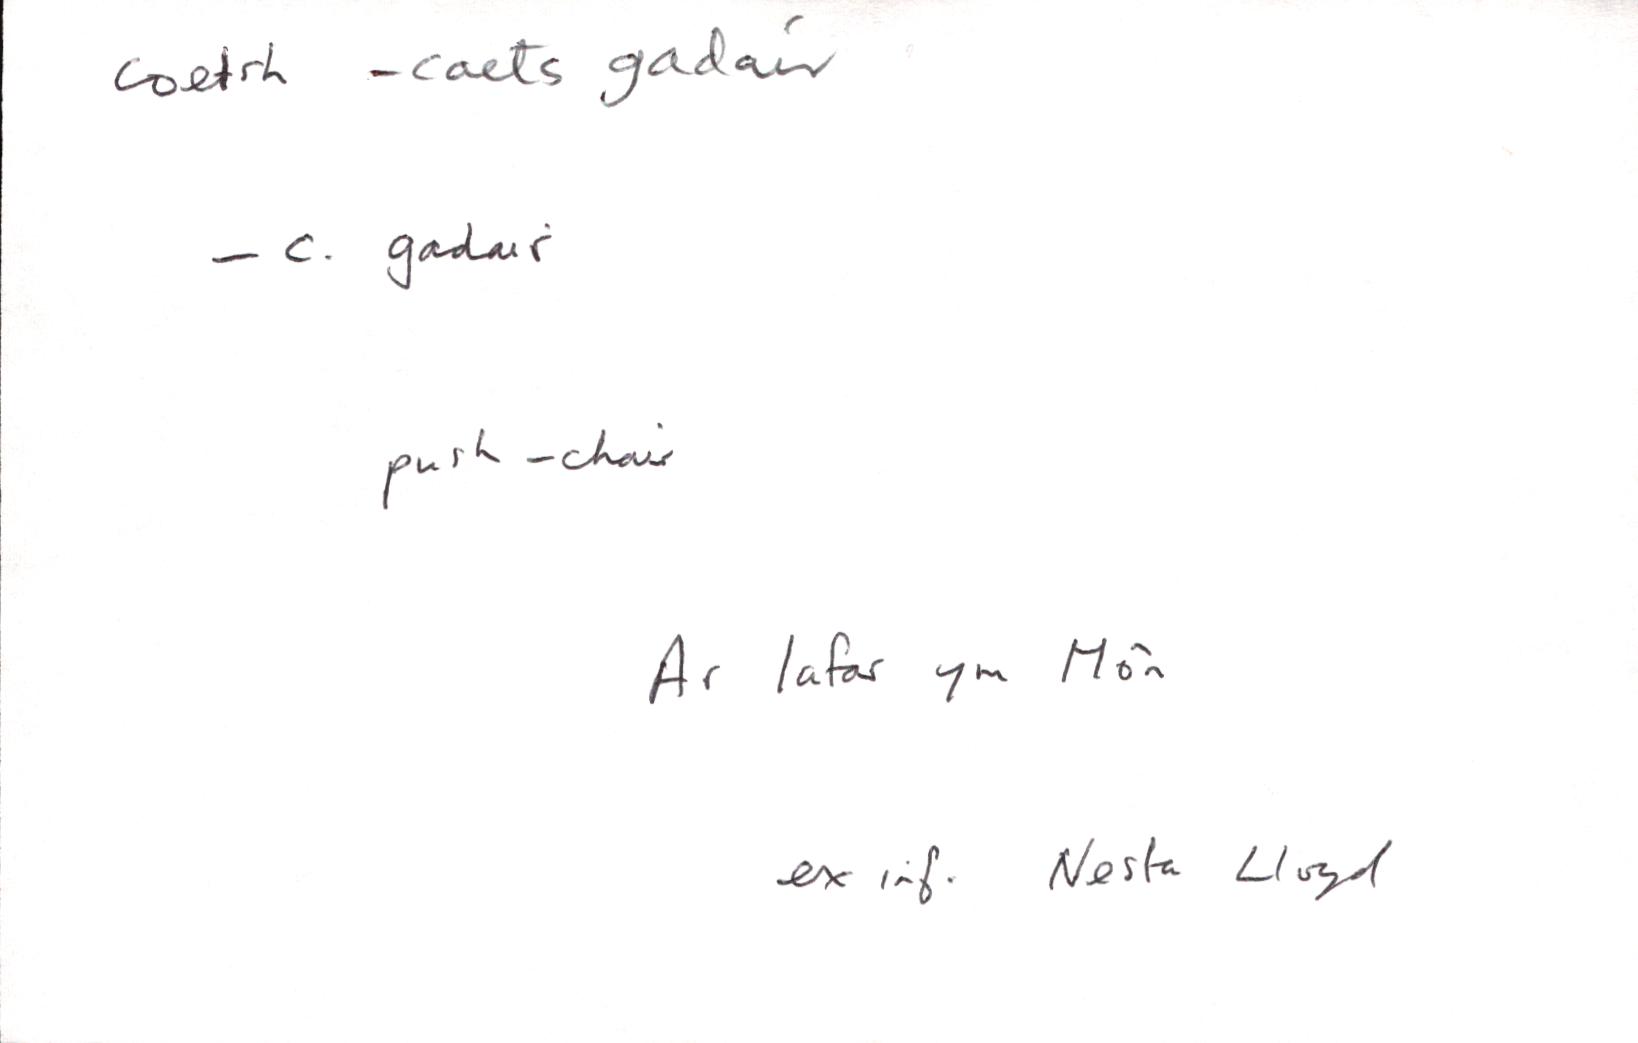 coetsh -caets gadair
- c. gadair
push-chair
Ar lafar ym Môn
ex inf. Nesta Lloyd